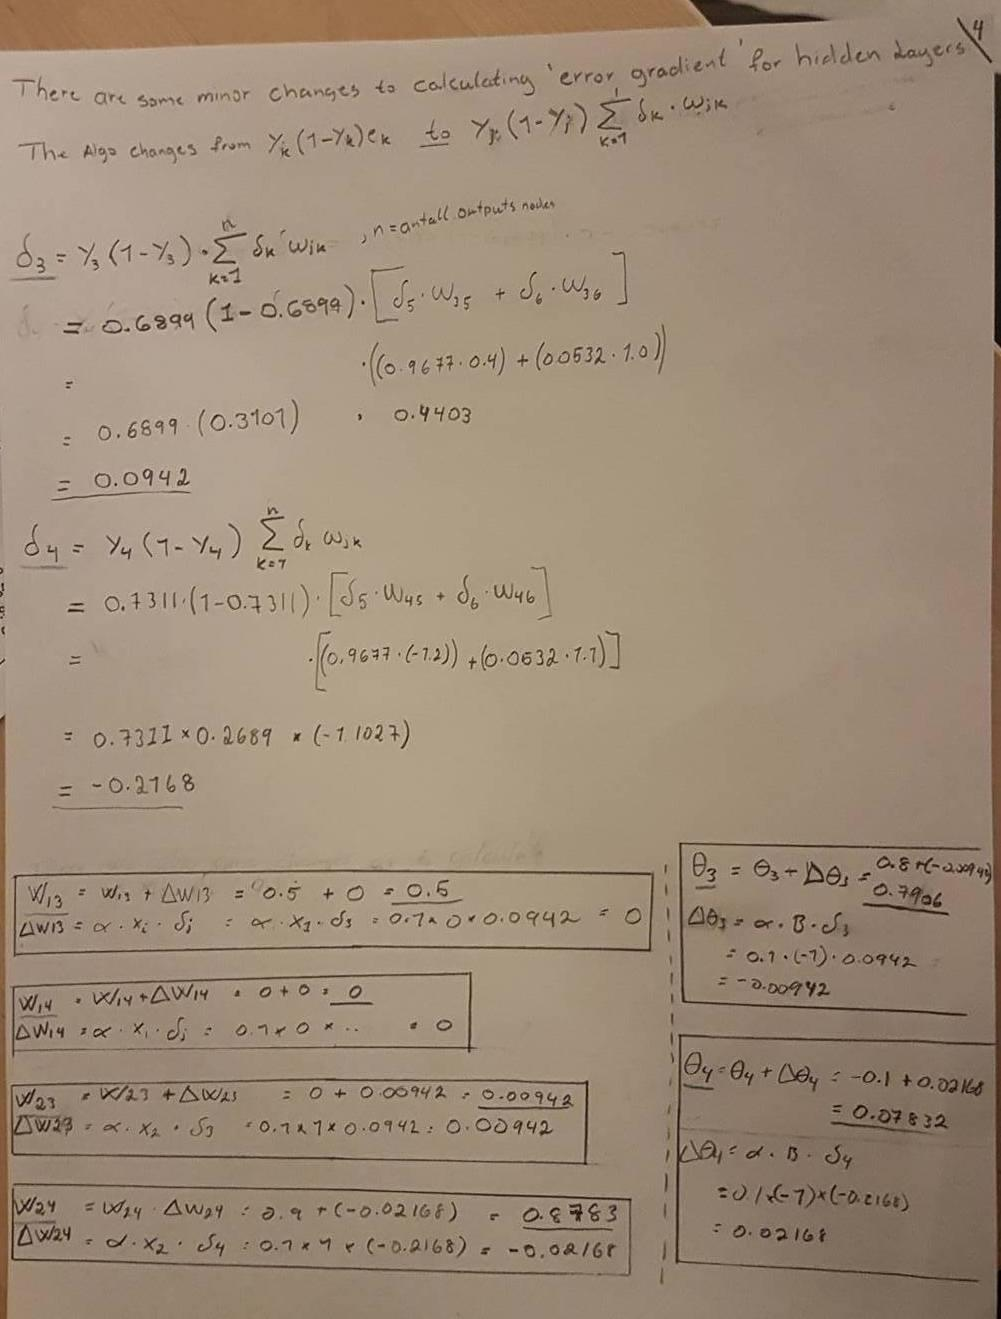 4
There are some minor changes to calculating 'error gradient' for hidden layers
The Algo changes from Yk (1-Yk) ek to Yj (1-Yj) Σ k=1 δk · wjk
δ3 = Y3 (1-Y3) · Σ n k=1 δk wjk , n = antall outputs nodes
= 0.6899 (1-0.6899) · [δ5 · W35 + δ6 · W36]
= · ((0.9677 · 0.4) + (0.0532 · 1.0))
= 0.6899 · (0.3101) · 0.4403
= 0.0942
δ4 = Y4 (1-Y4) Σ n k=1 δk wjk
= 0.7311 · (1-0.7311) · [δ5 · W45 + δ6 · W46]
= · [(0.9677 · (-1.2)) + (0.0532 · 1.1)]
= 0.7311 × 0.2689 × (-1.1027)
= -0.2168
W13 = W13 + ΔW13 = 0.5 + 0 = 0.5
ΔW13 = α · xi · δj = α · x1 · δ3 = 0.1 × 0 × 0.0942 = 0
W14 = W14 + ΔW14 = 0 + 0 = 0
ΔW14 = α · x1 · δj = 0.1 × 0 × .. = 0
W23 = W23 + ΔW23 = 0 + 0.00942 = 0.00942
ΔW23 = α · x2 · δ3 = 0.1 × 1 × 0.0942 = 0.00942
W24 = W24 · ΔW24 = 0.9 + (-0.02168) = 0.8783
ΔW24 = α · x2 · δ4 = 0.1 × 1 × (-0.2168) = -0.02168
θ3 = θ3 + Δθ3 = 0.8 + (-0.00942)
0.7906
Δθ3 = α · B · δ3
= 0.1 · (-1) · 0.0942
= -0.00942
θ4 = θ4 + Δθ4 = -0.1 + 0.02168
= 0.07832
Δθ4 = α · B · δ4
= 0.1 × (-1) × (-0.2168)
= 0.02168